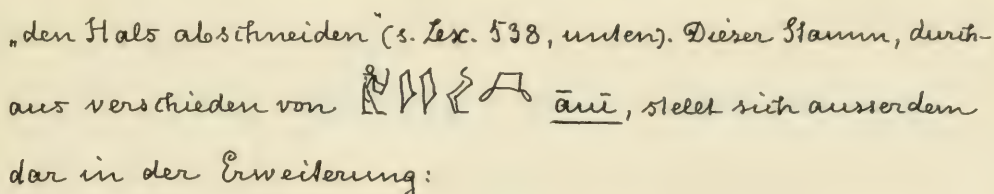 „den Hals abschneiden“ (s. Lex. 538, unten). Dieser Stamm, durch-
aus verschieden von āuī, stellt sich ausserdem
dar in der Erweiterung: